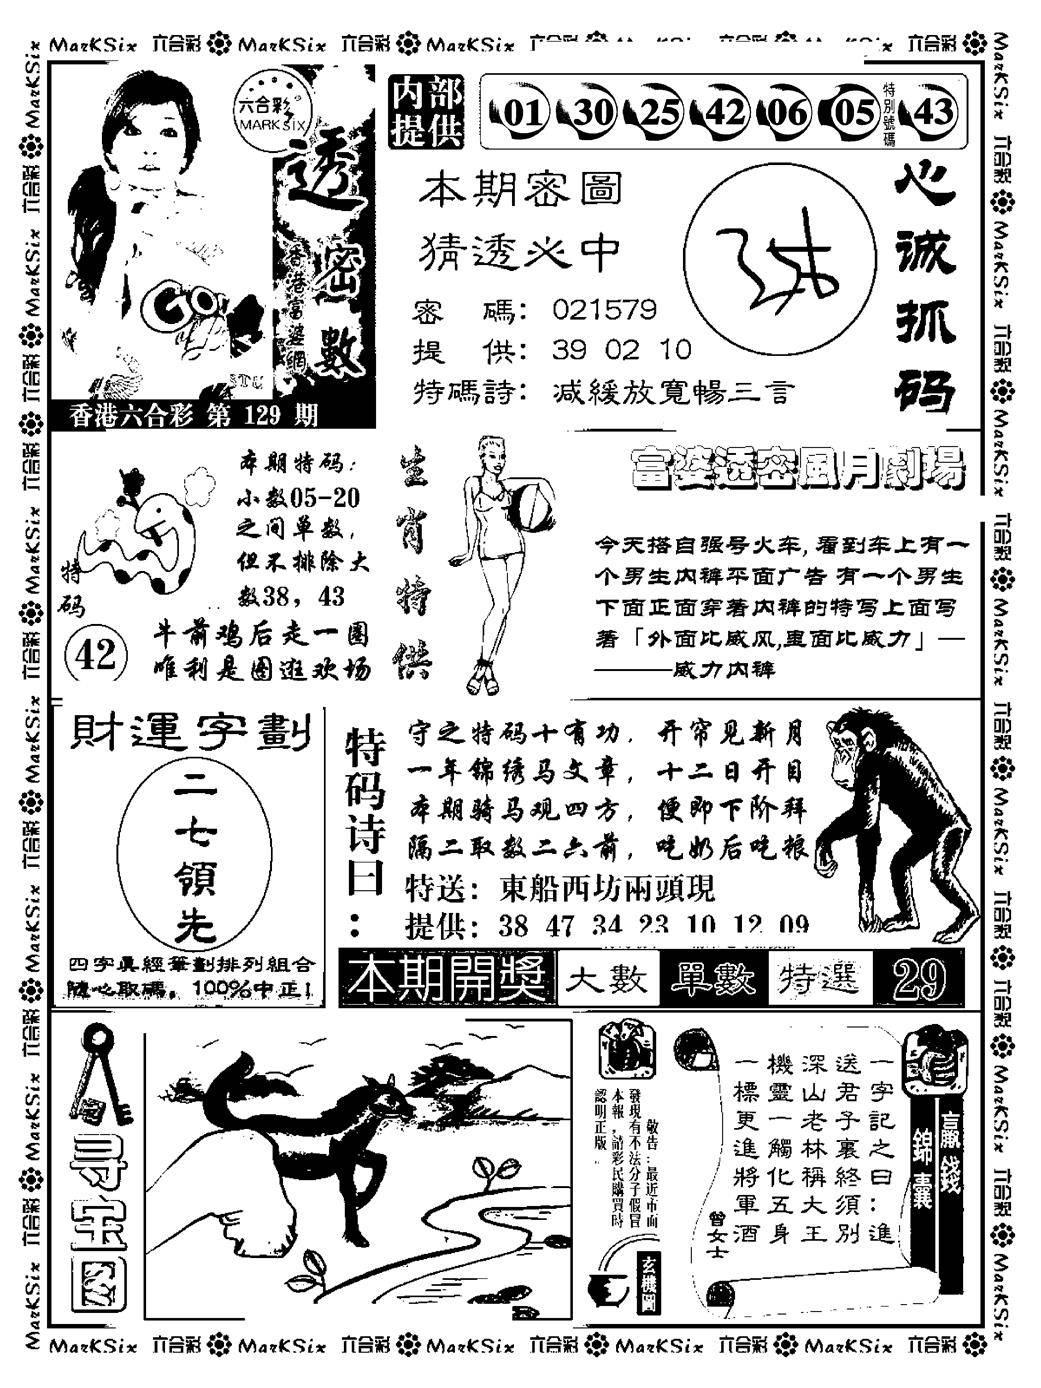 MarKSix 六合彩 MarKSix 六合彩 MarKSix
六合彩
MARKSIX
透密數
香港富婆網
香港六合彩 第 129 期
内部
提供
01 30 25 42 06 05 特別號碼 43
本期密圖
猜透必中
密 碼：021579
提 供：39 02 10
特碼詩：减緩放寬暢三言
心诚抓码
特码
42
本期特码：
小数05-20
之间单数，
但不排除大
数38，43
牛前鸡后走一圈
唯利是图逛欢场
生肖特供
富婆透密風月劇場
今天搭自强号火车,看到车上有一
个男生内裤平面广告 有一个男生
下面正面穿著内裤的特写上面写
著「外面比威风,里面比威力」—
————威力内裤
財運字劃
二七領先
四字眞經筆劃排列組合
隨心取碼，100%中正!
特码诗曰：
守之特码十有功，开帘见新月
一年锦绣马文章，十二日开目
本期骑马观四方，便即下阶拜
隔二取数二六前，吃奶后吃粮
特送：東船西坊兩頭現
提供：38 47 34 23 10 12 09
本期開獎 大數 單數 特選 29
寻宝图
敬告：最近市面
發現有不法分子假冒
本報，請彩民購買時
認明正版..
玄機圖
贏錢
錦囊
一字記之曰：進
送君子裏終須別
深山老林稱大王
機靈一觸化五身
一標更進將軍酒
曾女士
MarKSix 六合彩 MarKSix 六合彩 MarKSix 六合彩 MarKSix 六合彩 MarKSix 六合彩